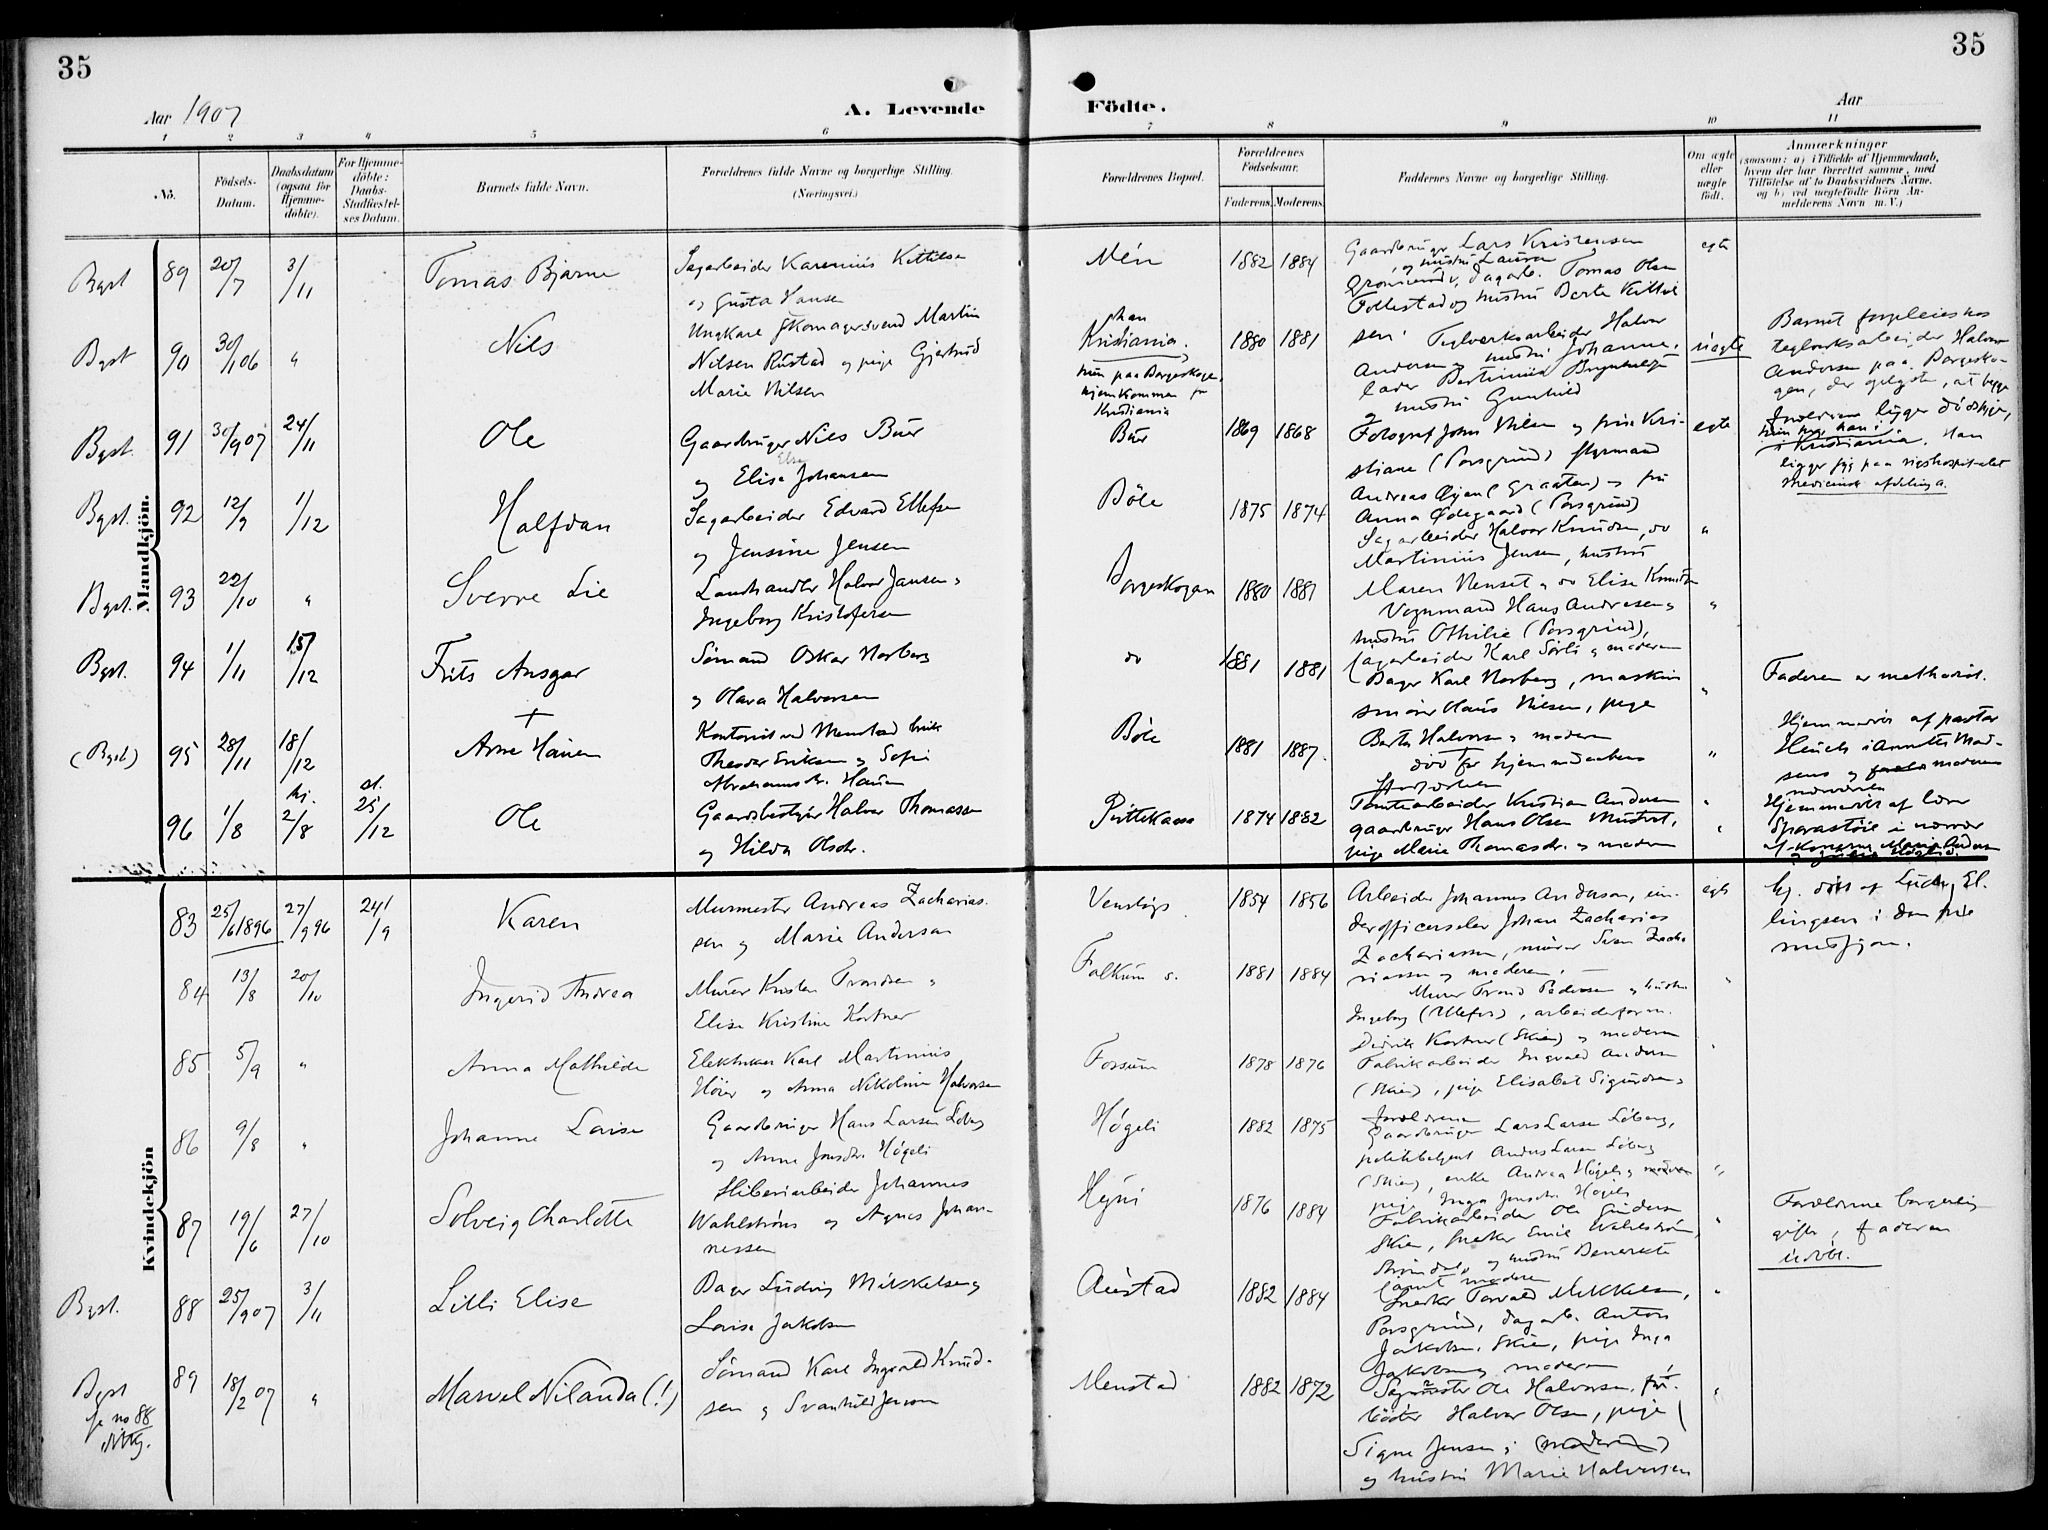 35
35
Aar 1907
A. Levende
Födte.
Aar
1 2 3 4 5 6 7 8 9 10 11
No.
Födsels-Datum.
Daabsdatum (ogsaa for Hjemme-döbte).
For Hjemme-döbte: Daabs-Stadfæstel-ses Datum.
Barnets fulde Navn.
Forældrenes fulde Navne og borgerlige Stilling. (Næringsvei.)
Forældrenes Bopæl.
Forældrenes Födselsaar.
Faderens. Moderens.
Faddernes Navne og borgerlige Stilling.
Om ægte eller uægte födt.
Anmærkninger
(saasom: a) i Tilfælde af Hjemmedaab, hvem der har forrettet samme, med Tilföielse af to Daabsvidners Navne, og b) ved uægtefödte Börn An-melderens Navn m. V.)
Mandkjön.
Bgst 89 20/7 3/11 Tomas Bjarne
Sagarbeider Karenius Kittilsen
og Gusta Hansen
Mén 1882 1884
Gaardbruger Lars Kristensen
og hustru Laura
Dagarb. Tomas Olsen
Follestad og hustru Berte Kittil
egte
Bgst 90 30/1 06 " Nils
Ungkarl Skomagersvend Martin
Nilsen Rustad og pige Gjertrud
Marie Nilsen
han
Kristiania,
hun paa Borgeskogen,
hjemkommen fr
Kristiania
1880 1881
sen. Teglverksarbeider Halvor
Andersen og hustru Johanne,
hustru Gunhild
uægte
Barnet forpleies hos
teglverksarbeider Halvor
Andersen paa Borgesko-
gen, der opligste, at begge
Forældrene ligger dödssyge,
hun paa han i
i Kristiania. Han
ligger syg paa rigshospitalet
medicinsk afdeling a.
Bgst. 91 30/9 07 24/11 Ole
Gaardbruger Nils Bûer
Elise
og Elise Johansen
Bûer 1869 1868
Fotograf John Nilsen og frue Kri-
stiane (Porsgrund) Styrmand
Andreas Øyen (Graaten) og frk
Anna Ødegaard (Porsgrund)
egte
Bgst. 92 12/9 1/12 Halfdan
Sagarbeider Edvard Ellefsen
og Jensine Jensen
Böle 1875 1874
Sagarbeider Halvor Knudsen, do
Martinius Jensen, hustru
Maren Nenset og do Elise Knudsen
"
Bgst. 93 22/10 " Sverre Lie
Landhandler Halvor Jansen og
Ingeborg Kristofersen
Borgeskogen 1880 1881
Vognmand Hans Andresen og
hustru Othilie (Porsgrund),
Sagarbeider Karl Sörli og moderen
"
Bgst. 94 1/11 15/12 Frits Ansgar
Sömand Oskar Norberg
og Olava Halvorsen
do 1881 1881
Bager Karl Norberg, maskin
smörer Hans Nilsen, pige
Berta Halvorsen og moderen
"
Faderen er methodist.
(Bgst) 95 28/11 18/12 Arne Hauen
Kontorist ved Menstad bruk
Theodor Eriksen og Sofie
Abrahamsdr. Hauen
Böle 1881 1887.
do for hjemmedaabens
Forældrene
"
Hjemmedöbt af pastor
Heuch i Annette Mad-
sens og moderens
nærværelse
96 1/8 hj. 2/8 st. 25/12 Ole
Gaardsbestyrer Halvor Thomassen
og Hilda Olsdr.
Pûttekaas 1874 1882
Tomtearbeider Kristian Andersen
gaardbruger Hans Olsen
pige Marie Thomasdr. og moderen
"
Hjemmedöbt af lærer
Sparastöie i nærvær
Kvindekjön
83 25/6 1896 27/9 96 24/9 Karen
Murmester Andreas Zacharias-
sen og Marie Andersen
Venstöp. 1854 1856
Arbeider Johannes Andersen, un-
derofficerselev Johan Zacharias
Zachariassen, murer Sven Zacha-
riassen og moderen.
egte
hj. döbt af Ludv. El-
lingsen i den frie
missjon.
84 13/8 20/10 Ingerid Andrea
Murer Kristen Trondsen og
Elise Kristine Kortner
Falkum s. 1881 1884
Murer Trond Pedersen og hustru
Ingeborg (Ulefos), arbeiderform.
Didrik Kortner (Skien) og moderen
"
85 5/9 " Anna Mathilde
Elektriker Karl Martinius
Höier og Anna Nikoline Halvorsen
Fossum 1878 1876
Fabrikarbeider Ingvald Andersen
(Skien), pige Elisabet Sigurdsen og
forældrene
"
86 9/8 " Johanne Louise
Gaardbruger Hans Larsen Löberg
og Anne Jonsdr. Högeli
Högeli 1882 1875
Gaardbruger Lars Larsen Löberg,
politibetjent Anders Larsen Löberg
(Skien), enke Andrea Högeli og moderen
pige Inga Jonsdr. Högeli
"
87 19/6 27/10 Solveig Charlotte
Sliberiarbeider Johannes
Wahlströms og Agnes Johan-
nessen
Hyni 1876 1884
Fabrikarbeider Ole Gundersen
Skien, snekker Emil Wahlström,
og hustru Benedikte
samt moderen
"
Forældrene borgerlig
gifte, faderen
udöbt.
Bgst. 88 25/9 07 3/11 Lilli Elise
Bager Ludvig Mikkelsen og
Louise Jakobsen
Aûstad 1882 1884
Snekker Torvald Mikkelsen,
Porsgrund, dagarb. Anton
Jakobsen, Skien, pige Inga
Jakobsen og moderen
"
Bgst 89 18/2 07 " Marvel Nilanda (!)
se no 88
Sömand Karl Ingvald Knud-
sen og Svanhild Jensen
Menstad 1882 1872
Sagmester Ole Halvorsen, für-
bödter Halvor Olsen, pige
Signe Jensen, (moderen)
og hustru Marie Halvorsen
"